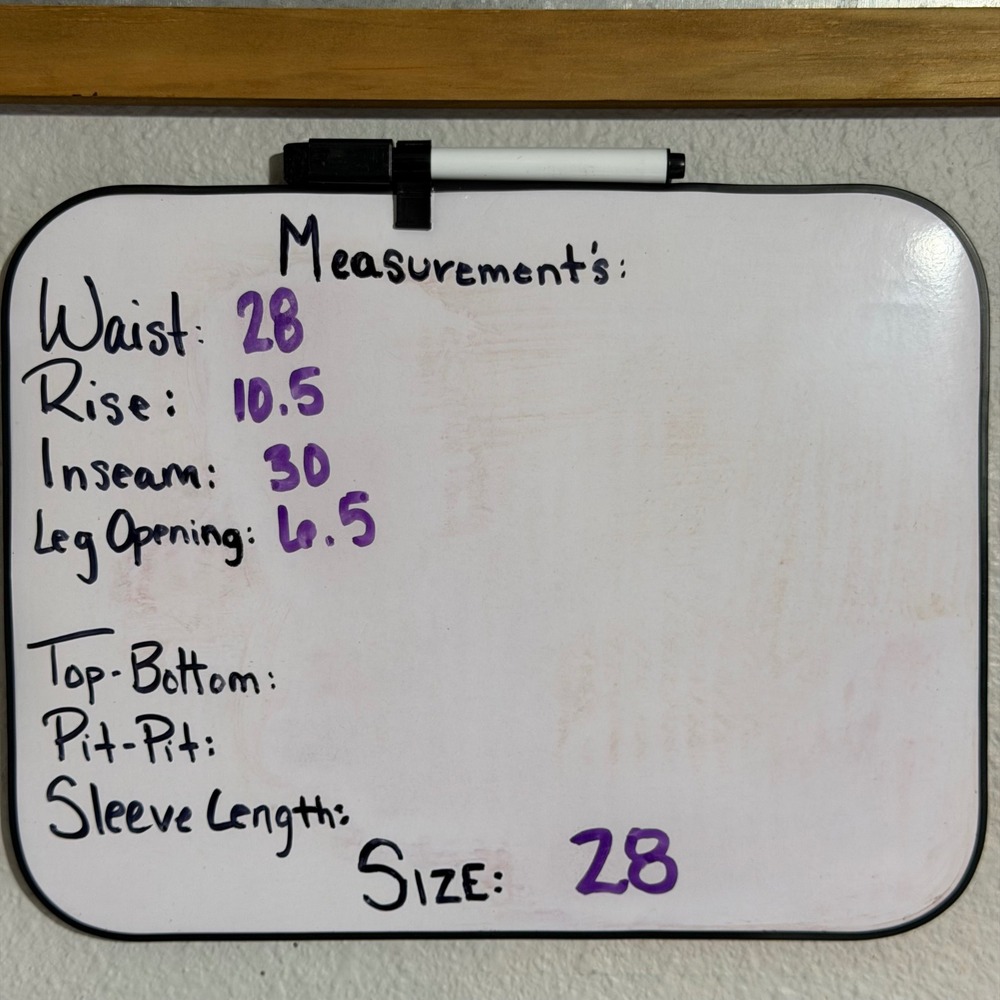 Measurement's:
Waist: 28
Rise: 10.5
Inseam: 30
Leg Opening: 6.5
Top-Bottom:
Pit-Pit:
Sleeve Length:
SIZE: 28